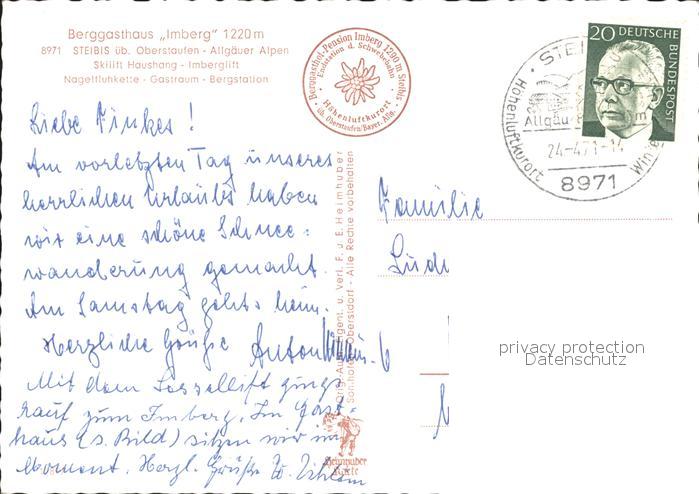 Berggasthaus „Imberg" 1220 m
8971 STEIBIS üb. Oberstaufen - Allgäuer Alpen
Skilift Haushang - Imberglift
Nagelfluhkette - Gastraum - Bergstation
Berggasthof-Pension Imberg 1200 m Steibis
Endstation d. Schwebebahn
Höhenluftkurort
üb. Oberstaufen/Bayer. Allg.
20 DEUTSCHE BUNDESPOST
Höhenluftkurort
Allgäu
24-4.71-14
8971
Liebe Finkes!
Am vorletzten Tag unseres
herrlichen Urlaubs haben
wir eine schöne Schnee=
wanderung gemacht.
Am Samstag geht's heim.
Herzliche Grüße Anton
Mit dem Sessellift gings
rauf zum Imberg. Im Gast=
haus (s. Bild) sitzen wir im
Moment. Herzl. Grüße
Familie
Lüd
u. Verl. F. u. E. Heimhuber
Oberstdorf - Alle Rechte vorbehalten
Heimhuber
Karte
privacy protection
Datenschutz